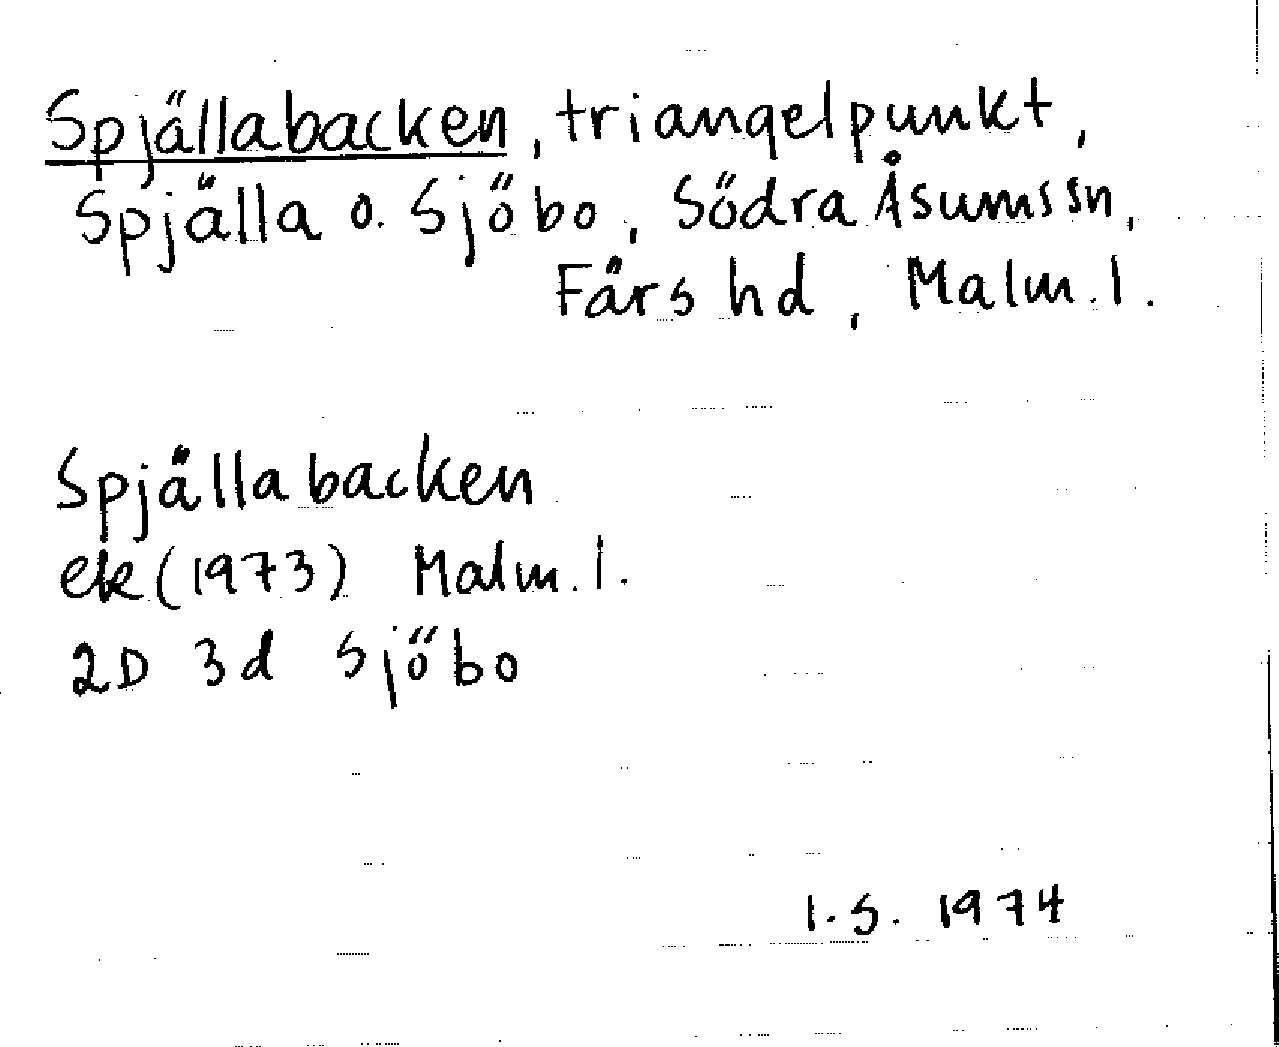 Spjällabacken, triangelpunkt,
Spjälla o. Sjöbo, Södra Åsums sn,
Färs hd, Malm. l.
Spjällabacken
ek (1973) Malm. l.
2D 3d Sjöbo
I. S. 1974